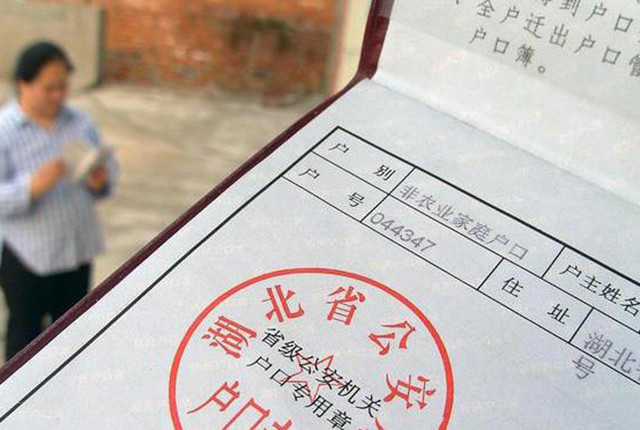 到户口
全户迁出户口管
户口簿。
户别 非农业家庭户口 户主姓名
户号 044347 住址 湖北
号
湖北省公安
省级公安机关
户口专用章
户口